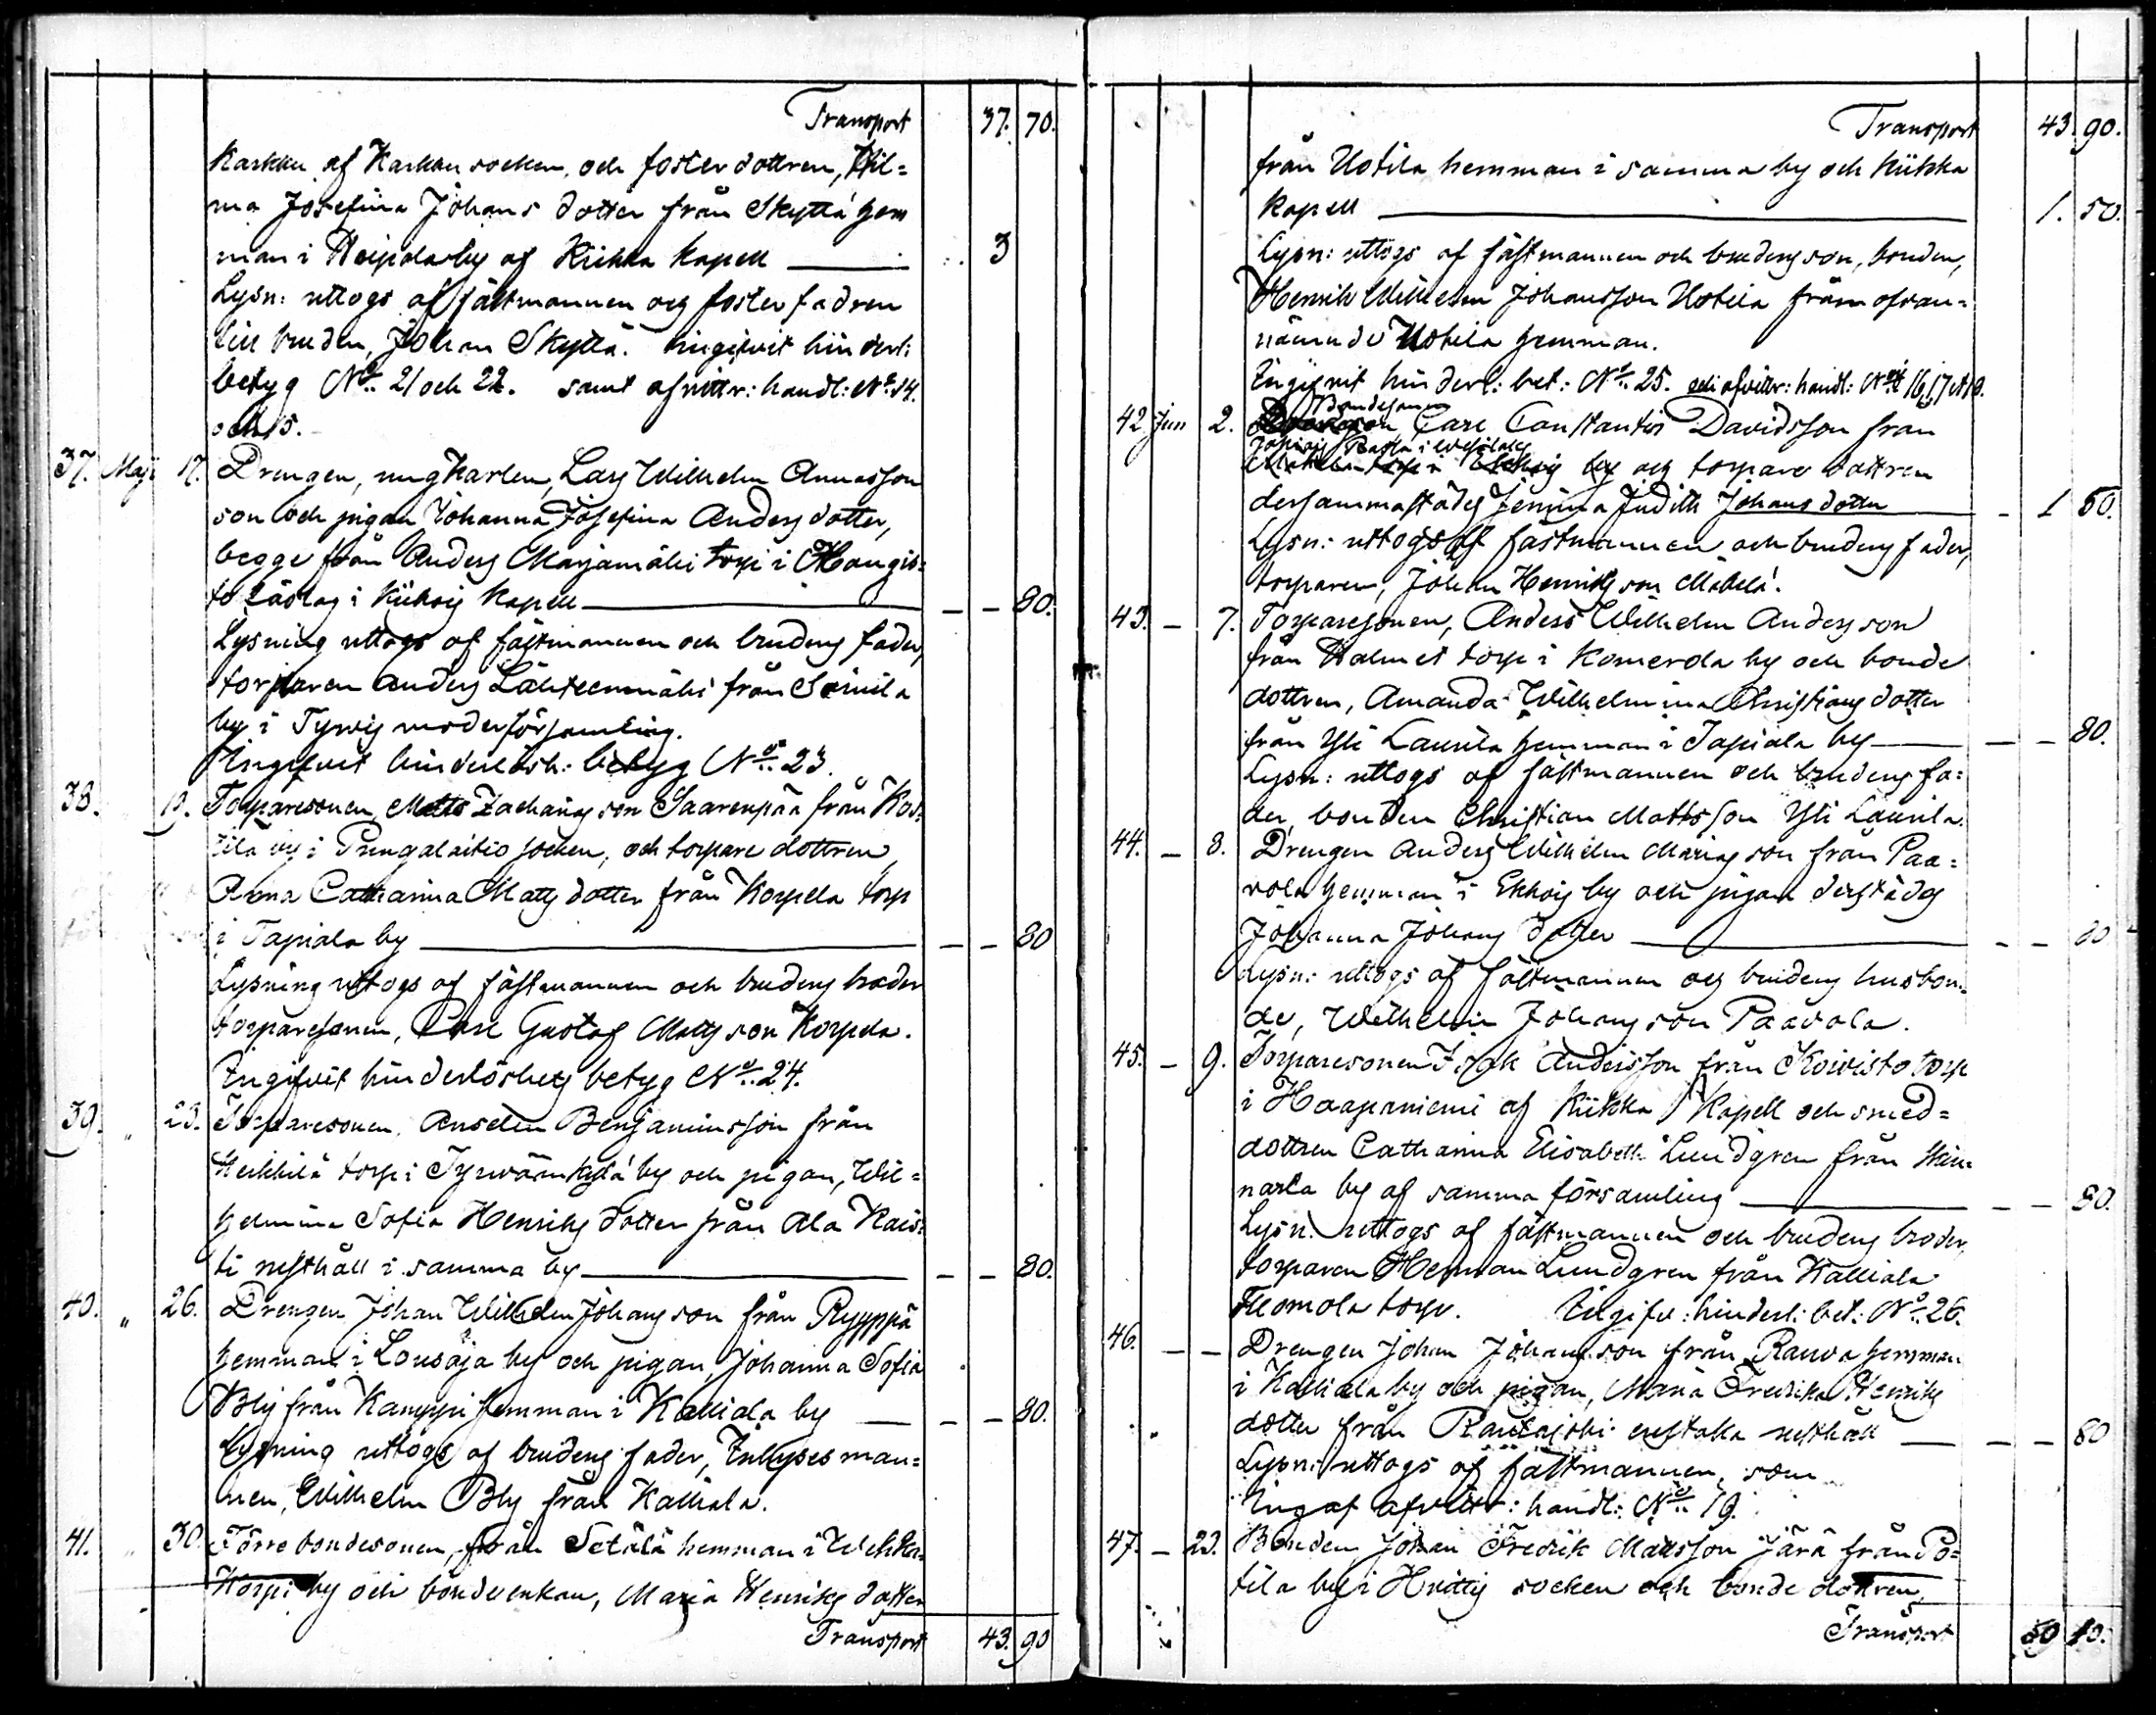 Transport 37. 70.
Karkku af Karkku socken, och foster dottren, Hil=
ma Josefina Johans dotter från Skyttä hem
man i Heipola by af Kiikka Kapell — 3
Lysn: uttogs af fästmannen och foster fadren
till bruden, Johan Skyttä. Ingifvit hinderl:
betyg No. 21 och 22. samt afvittr: handl: No. 14.
och 15.
37. Maji 17. Drengen, ungkarlen, Lars Wilhelm Annasson
son och pigan Johanna Josefina Anders dotter,
begge från Anders Marjamäki torp i Haugis=
to Låslag i Kiikois Kapell — — — 80.
Lysning uttogs af fästmannen och brudens fader,
torparen Anders Lähteenmäki från
by i Tyrvis moderförsamling.
Ingifvit hinderlösh: betyg No. 23.
38. 19. Torparesonen Matts Zacharias son Saarenpää från
by i Pungalaitio socken, och torpare dottren,
Anna Catharina Matts dotter från Korpela torp
i Tapiala by — — — 80
Lysning uttogs af fästmannen och brudens broder
torparesonen, Carl Gustaf Matts son Korpela.
Ingifvit hinderlöshets betyg No. 24.
39. „ 23. Torparesonen, Anselm Benjaminsson från
Heikkilä torp i Tyrväänkylä by och pigan, Wil=
helmina Sofia Henriks dotter från Ala Kais=
ti rusthåll i samma by — — — 80.
40. „ 26. Drengen Johan Wilhelm Johans son från Ryyppä
hemman i Lousaja by och pigan, Johanna Sofia
Bly från Kamppi hemman i Kalliala by — — — 80.
Lysning uttogs af brudens fader, Inhyses man=
nen, Wilhelm Bly från Kalliala.
41. „ 30. Förre bondesonen, från Setälä hemman i Wehka=
Korpi by och bondeenkan, Maria Henriks dotter
Transport 43. 90
Transport 43. 90.
från Uotila hemman i samma by och Kiikka
Kapell — 1. 50.
Lysn: uttogs af fästmannen och brudens son, bonden,
Henrik Wilhelm Johansson Uotila från ofvan=
nämnde Uotila hemman.
Ingifvit hinderl: bet: No. 25. och afvittr: handl: No. 16, 17 et 18.
42. Jun 2. Bondeson Carl Constantin Davidsson från
by och torpare dottren
dersammastädes Jemina Judith Johans dotter — 1 50.
Lysn: uttogs af fästmannen och brudens fader,
torparen, Johan Henriks son Mäkelä.
43. — 7. Torparesonen, Anders Wilhelm Anders son
från Halmet torp i Komerola by och bonde
dottren, Amanda Wilhelmina Christians dotter
från Yli Laurila hemman i Tapiala by — — — 80.
Lysn: uttogs af fästmannen och brudens fa=
der, bonden Christian Mattsson Yli Laurila.
44. — 8. Drengen Anders Wilhelm Marias son från Paa=
vola hemman i Ekkois by och pigan derstädes
Johanna Johans dotter — — — 80
Lysn: uttogs af fästmannen och brudens husbon=
de, Wilhelm Johans son Paavola.
45. — 9. Torparesonen Isak Andersson från Koivisto torp
i Haapaniemi af Kiikka Kapell och smed=
dottren Catharina Elisabeth Lundgren från Kin=
narla by af samma församling — — — 80.
Lysn. uttogs af fästmannen och brudens broder,
torparen Herman Lundgren från Kalliala
Tuomola torp. Ingifv: hinderl: bet: No. 26.
46. — — Drengen Johan Johansson från Rauva hemman
i Kalliala by och pigan, Maria Fredrika Henriks
dotter från Rautajoki enstaka rusthåll — — — 80
Lysn: uttogs af fästmannen, som
Ingaf afvittr: handl: No. 19.
47. — 23. Bonden Johan Fredrik Matsson Järä från So=
tila by i Hvittis socken och bonde dottren,
Transport 50 10.